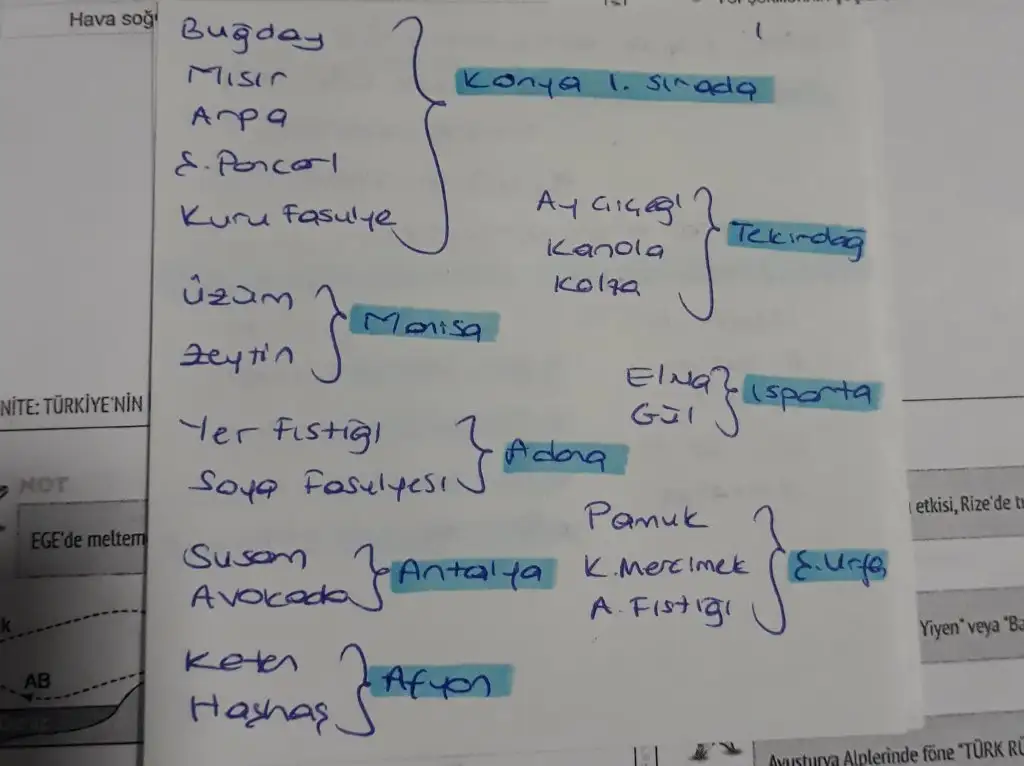 Hava soğ
Buğday
Mısır
Arpa
Ş. Pancarı
Kuru Fasulye
Konya 1. sırada
Ay çiçeği
Kanola
Kolza
Tekirdağ
Üzüm
Zeytin
Manisa
Elma
Gül
Isparta
NİTE: TÜRKİYE'NİN
Yer Fıstığı
Soya Fasulyesi
Adana
NOT
EGE'de meltem
Pamuk
K. Mercimek
A. Fıstığı
Ş. Urfa
etkisi, Rize'de
Susam
Avokado
Antalya
Yiyen" veya "Ba
k
AB
Keten
Haşhaş
Afyon
Avusturya Alplerinde föne "TÜRK RÜ